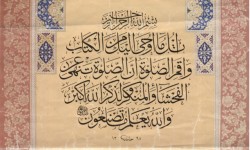 بسم الله الرحمن الرحيم
اتل ما أوحي إليك من الكتاب
وأقم الصلوة إن الصلوة تنهى عن
الفحشاء والمنكر ولذكر الله أكبر
والله يعلم ما تصنعون